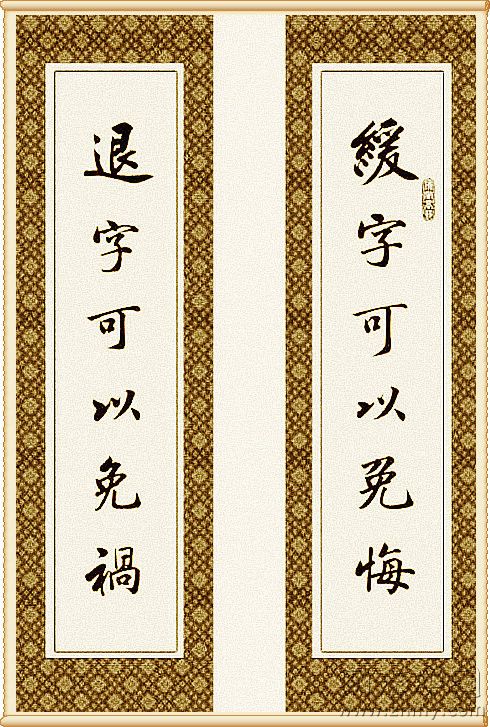 緩字可以免悔
退字可以免禍